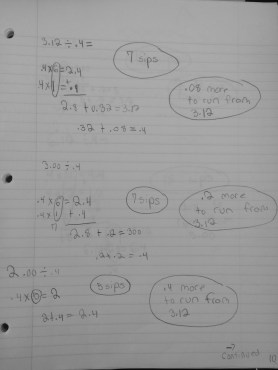 3.12 ÷ .4 =
.4 x 6 = 2.4
.4 x 1 = + .4
2.8 + 0.32 = 3.12
.32 + .08 = .4
7 sips
.08 more
to run from
3.12
3.00 ÷ .4
.4 x 6 = 2.4
.4 x 1 + .4
7
2.8 + .2 = 300
.2 + .2 = .4
7 sips
.2 more
to run from
3.12
2.00 ÷ .4
.4 x 5 = 2
2 + .4 = 2.4
5 sips
.4 more
to run from
3.12
→